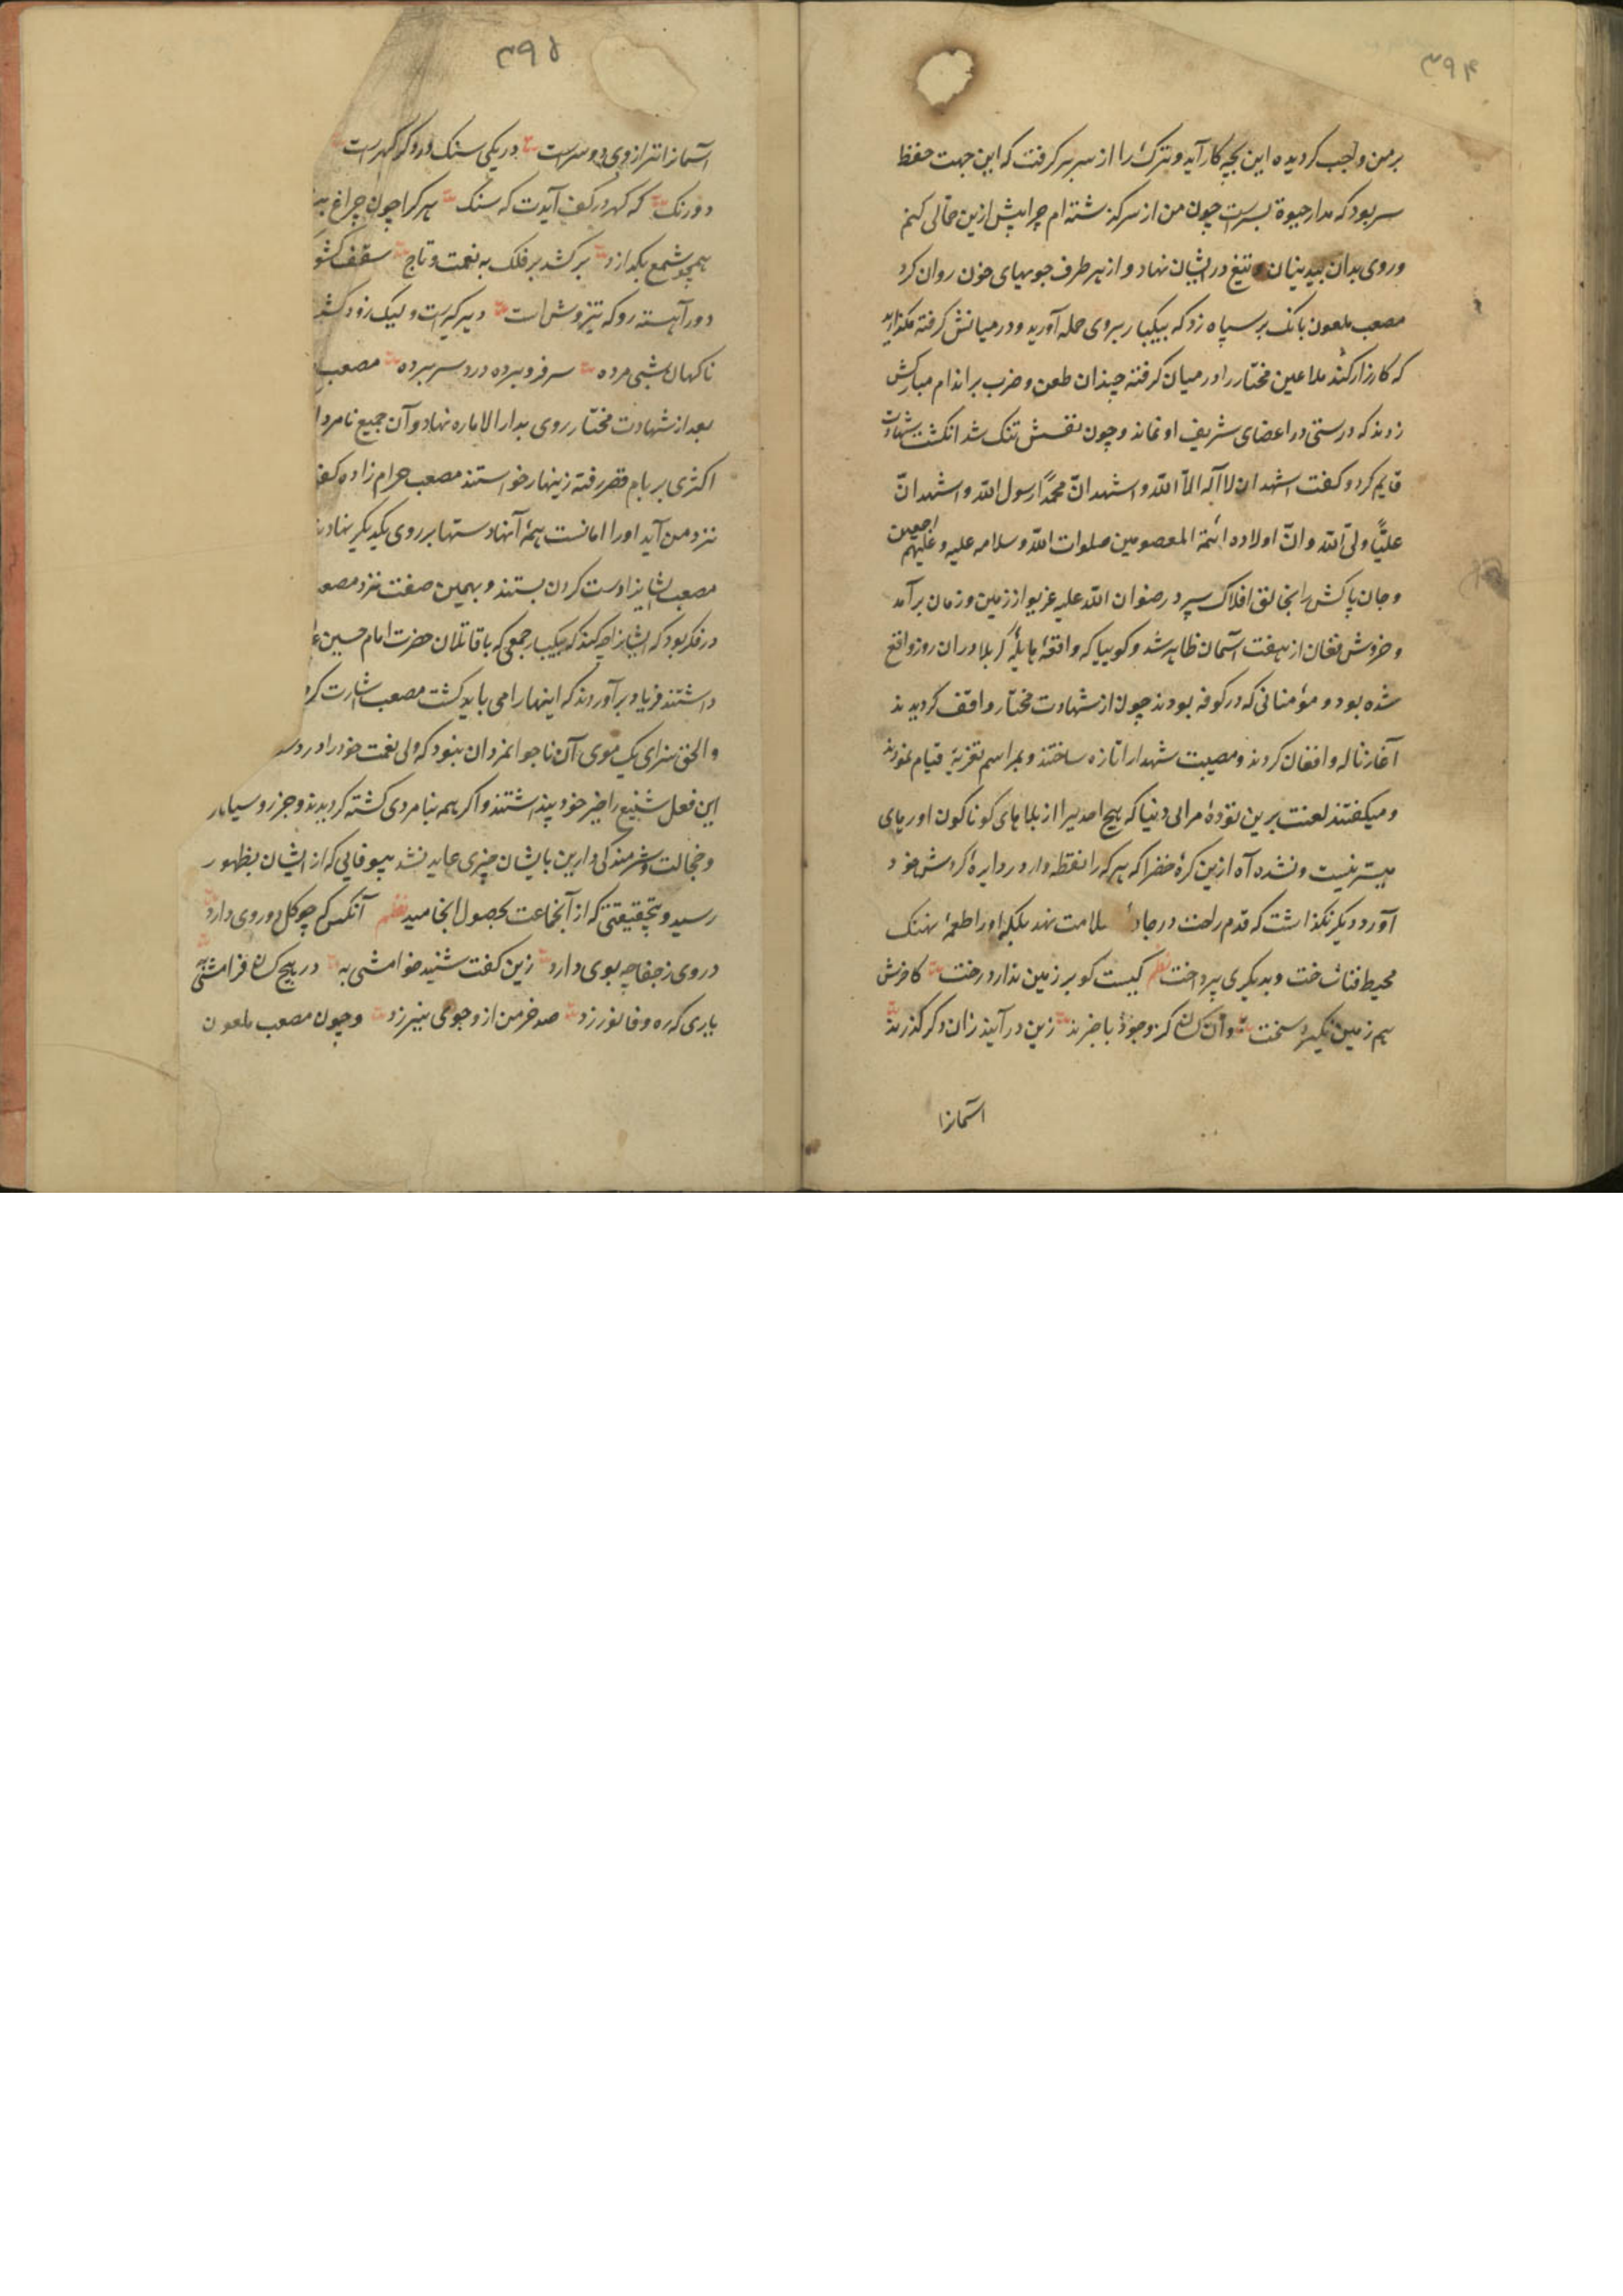 ۳۹۴
بر من واجب کردیده این بچه کار آید و ترک را از سر بر کرفت که این جهت حفظ
سر بود که مدار حیوة بسرست چون من از سر کذشته ام چرا پیش ازین حالی کنم
و روی بدان بیدینان و تیغ در ایشان نهاد و از هر طرف جویهای خون روان کرد
مصعب ملعون بانک بر سپاه زد که بیکبار بروی حمله آورید و در میانش کرفته مکذارید
که کارزار کند ملاعین مختار را در میان کرفته چندان طعن و ضرب بر اندام مبارکش
زدند که درستی در اعضای شریف او نماند و چون نفسش تنک شد انکشت شهادت
قایم کرد و کفت اشهد ان لا آله الاّ اللّه و اشهد انّ محمّداً رسول اللّه و اشهد انّ
علیّاً ولیّ اللّه و انّ اولاده ائمة المعصومین صلوات اللّه و سلامه علیه و علیهم اجمعین
و جان پاکش را بخالق افلاک سپرد رضوان اللّه علیه غریو از زمین و زمان بر آمد
و خروش فغان از هفت آسمان ظاهر شد و کوییا که واقعهٔ هایلهٔ کربلا در ان روز واقع
شده بود و مؤمنانی که در کوفه بودند چون از شهادت مختار واقف کردیدند
آغاز ناله و افغان کردند و مصیبت شهدا را تازه ساختند و بمراسم تعزیهٔ قیام نمودند
و میکفتند لعنت برین تودهٔ مرالی دنیا که هیچ احدیرا از بلاهای کوناکون او رهای
میسّر نیست و نشده آه ازین کرهٔ خضرا که هر که را نقطه وار در دایرهٔ کردش خود
آورد دیکر نکذاشت که قدم راحت در جادهٔ سلامت نهد بلکه او را طعمهٔ نهنک
محیط فنا ساخت و بدیکری پرداخت نظم کیست کو بر زمین ندارد رخت کاخرش
هم زمین نکیرد سخت وان کسان کز وجود با خبرند زین در آیند زان دکر کذرند
آسمانرا
۳۹۵
آسمانرا ترازوی دو سرست در یکی سنک و در دکر کهرست
دو رنک که کهر در کف آیدت که سنک هر کرا چون چراغ
همچو شمع بکدازد بر کشد بر فلک به نعمت و تاج سقف
دور آهسته رو که تیز وش است دیر کیرست و لیک زود
ناکهان شبی مرده سر فرو برده درد سر برده مصعب
بعد از شهادت مختار روی بدار الاماره نهاد و آن جمیع نامردا
اکثری بر بام قصر رفته زینهار خواستند مصعب حرام زاده
نزد من آید او را امانست همهٔ آنها دستها بر روی یکدیکر نهاد
مصعب ایشانرا دست کردن بستند و بهمین صفت نزد مصعب
در فکر بود که ایشانرا چه کند که بیکبار جمعی که با قاتلان حضرت امام حسین
داشتند فریاد بر آوردند که اینها را می باید کشت مصعب اشارت کرد
و الحق سزای یک موی آن ناجوانمردان نبود که ولی نعمت خود را در دست
این فعل شنیع را خیر خود پنداشتند و اکر همه بنامردی کشته کردیدند و جز رو سیاهی
و خجالت و شرمندکی دارین بایشان چیزی عاید نشد بیوفایی که از ایشان بظهور
رسید و بی حقیقتی که از آنجماعت بحصول انجامید نظم آنکس که چو کل دو روی دارد
در روی ز جفا چه بوی دارد زین کفت شنید خوامشی به در هیچ کسان فرامشی به
یاری که ره وفا نورزد صد خرمن از و جوی نیرزد و چون مصعب ملعون